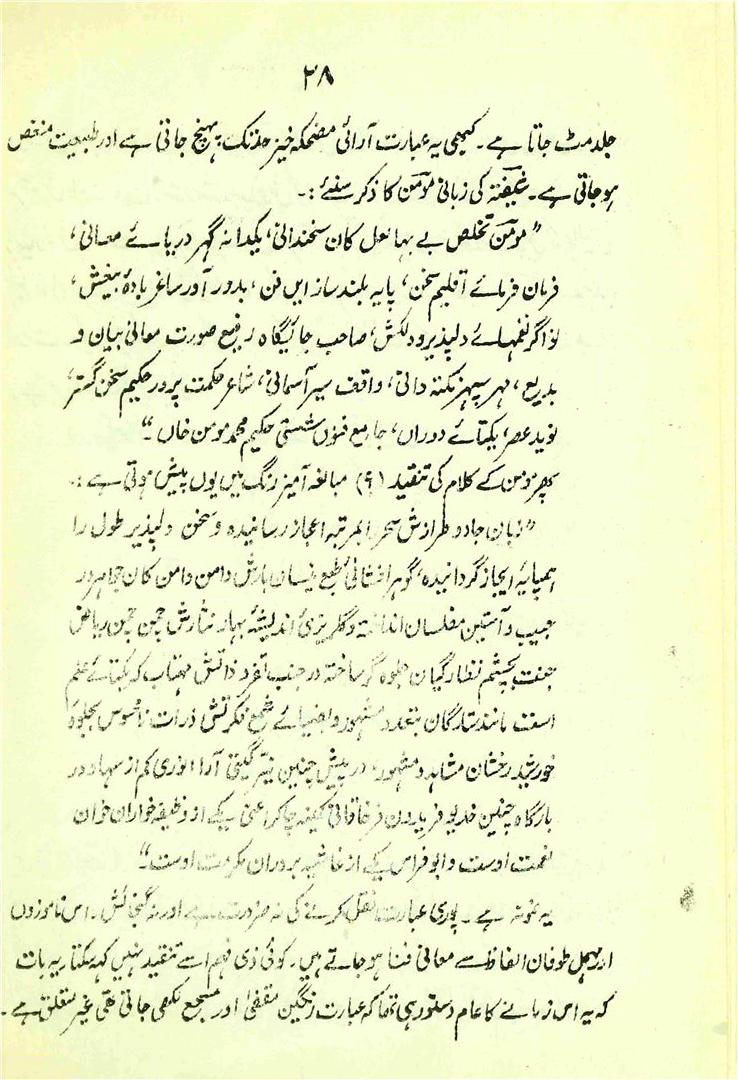 ۲۸
جلد مٹ جاتا ہے۔ کبھی یہ عبارت آرائی مضحکہ خیز حد تک پہنچ جاتی ہے اور طبیعت منغص
ہو جاتی ہے۔ شیفتہ کی زبانی مومن کا ذکر سنئے :۔
" مومن تخلص بے بہا لعل کان سخندانی، یکدانہ گہر دریائے معانی،
فرمان فرمائے اقلیم سخن، پایہ بلند ساز ایں فن، بدور آور ساغر بادۂ بیغش،
نواگر نغمہائے دلپذیر و دلکش، صاحب جائیگاہ رفیع صورت معانی بیان و
بدیع، مہر سپہر نکتہ دانی، واقف سیر آسمانی، شاعر حکمت پرور حکیم سخن گستر،
نوید عصر، یکتائے دوراں، جامع فنون شتی حکیم محمد مومن خاں ۔"
پھر مومن کے کلام کی تنقید (؟) مبالغہ آمیز رنگ میں یوں پیش ہوتی ہے :۔
" زبان جادو طرازش سحر را بمرتبہ اعجاز رسانیدہ و سخن دلپذیر طول را
ہمپایۂ ایجاز گردانیدہ، گوہر افشانیٔ طبع نیساں بارش دامن دامن کان جواہر در
جیب و آستین مفلسان انداختہ و گلریزیٔ اندیشۂ بہار نثارش چمن چمن ریاض
جنت بچشم نظارگیان جلوہ گر ساختہ در جنب تفرد ذاتش مہتاب کہ یکتائے علم
است مانند ستارگان بتعدد مشہور و بضیائے شمع فکرتش ذرات نامحسوس بجلوۂ
خورشید رخشان مشاہد و منظور، در پیش چنین نیّر گیتی آرا انوری کم از سہا و در
بارگاہ چنین خدیو فریدون فر خاقانی کمینہ چاکر اعنی یکے از وظیفہ خواران خوان
نعمت اوست و ابو فراس یکے از غاشیہ بردوران مکرمت اوست ۔"
یہ نمونہ ہے۔ پوری عبارت نقل کرنے کی نہ ضرورت ہے اور نہ گنجائش۔ اس ناموزوں
اور مہمل طوفان الفاظ سے معانی فنا ہو جاتے ہیں۔ کوئی ذی فہم اسے تنقید نہیں کہہ سکتا۔ یہ بات
کہ یہ اس زمانے کا عام دستور ہی تھا کہ عبارت رنگین مقفیٰ اور مسجع لکھی جاتی تھی غیر متعلق ہے۔